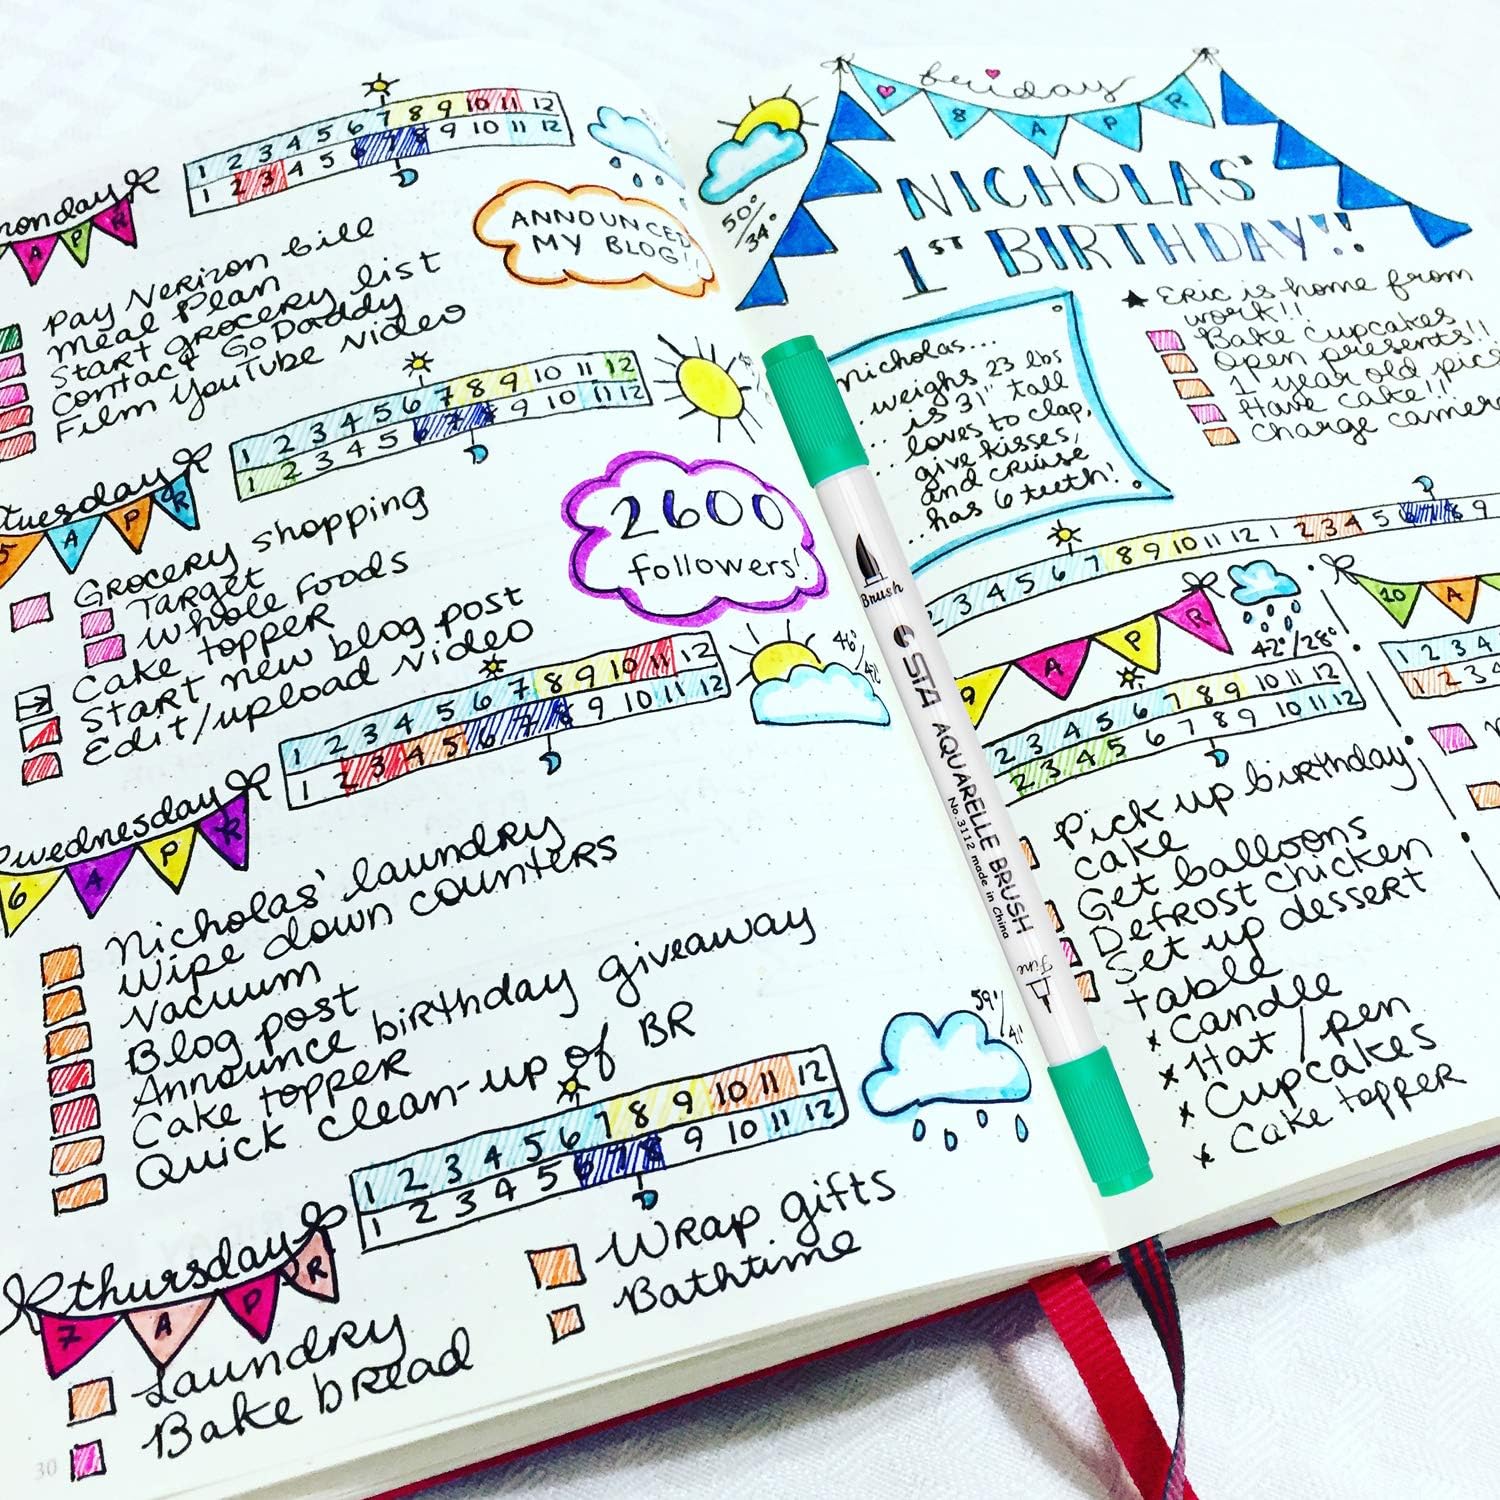 monday
A P R
1 2 3 4 5 6 7 8 9 10 11 12
1 2 3 4 5 6 7 8 9 10 11 12
ANNOUNCED
MY BLOG!!
Pay Verizon bill
Meal Plan
Start grocery list
Contact GoDaddy
Film YouTube video
tuesday
5 A P R
1 2 3 4 5 6 7 8 9 10 11 12
1 2 3 4 5 6 7 8 9 10 11 12
2600
followers!
Grocery shopping
Target
Whole Foods
Cake topper
Start new blog post
Edit/upload video
wednesday
6 A P R
1 2 3 4 5 6 7 8 9 10 11 12
1 2 3 4 5 6 7 8 9 10 11 12
46°
Nicholas' laundry
Wipe down counters
Vacuum
Blog post
Announce birthday giveaway
Cake topper
Quick clean-up of BR
thursday
7 A P R
1 2 3 4 5 6 7 8 9 10 11 12
1 2 3 4 5 6 7 8 9 10 11 12
59°/
Laundry
Bake bread
Wrap gifts
Bathtime
30
friday
8 A P R
50°
34°
NICHOLAS'
1ST BIRTHDAY!!
Nicholas...
weighs 23 lbs
... is 31" tall
... loves to clap,
give kisses,
and cruise
... has 6 teeth!
Eric is home from
work!!
Bake cupcakes
Open presents!!
1 year old pics
Have cake!!
Charge camera
3 4 5 6 7 8 9 10 11 12 1 2 3 4 5 6 7 8 9
9 A P R
42°/28°
2 3 4 5 6 7 8 9 10 11 12
2 3 4 5 6 7 8 9 10 11 12
Pick up birthday
cake
Get balloons
Defrost chicken
Set up dessert
table
x Candle
x Hat/pen
x Cupcakes
x Cake topper
10 A
1 2 3 4
1 2 3 4
Brush
STA AQUARELLE BRUSH
No.3112 made in China
Fine